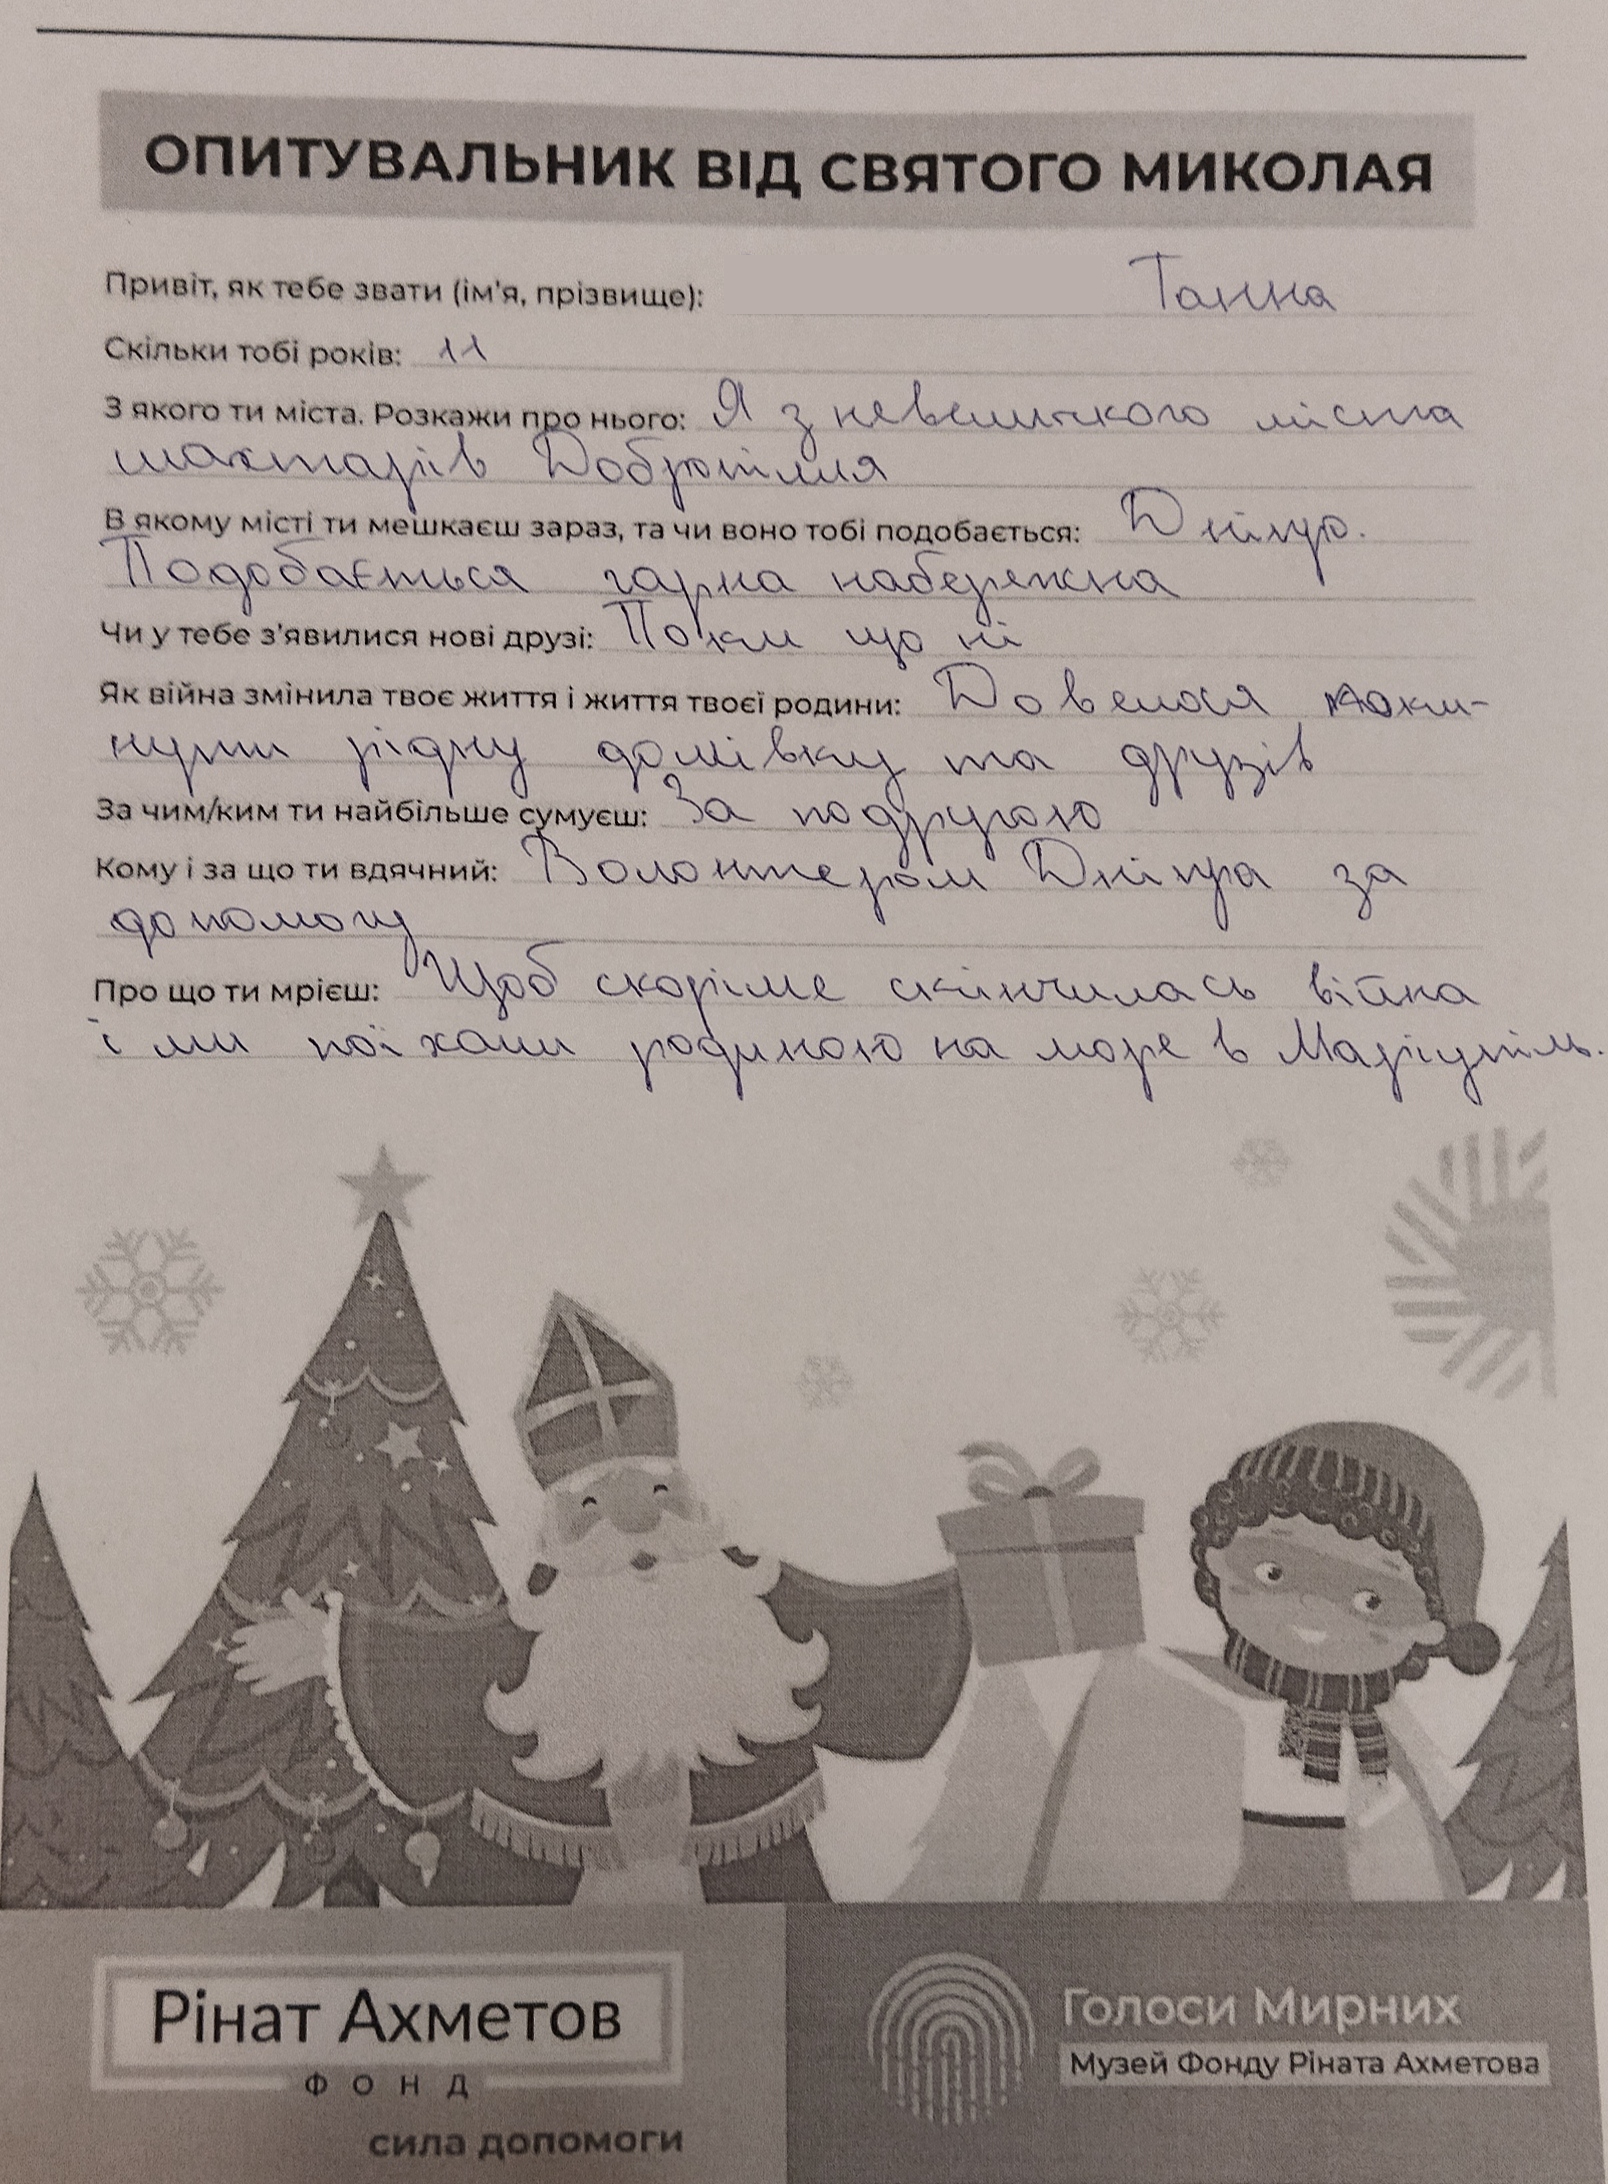 ОПИТУВАЛЬНИК ВІД СВЯТОГО МИКОЛАЯ
Привіт, як тебе звати (ім'я, прізвище): Ганна
Скільки тобі років: 11
З якого ти міста. Розкажи про нього: Я з невеличкого міста
шахтарів Добропілля
В якому місті ти мешкаєш зараз, та чи воно тобі подобається: Дніпро.
Подобається гарна набережна
Чи у тебе з'явилися нові друзі: Поки що ні
Як війна змінила твоє життя і життя твоєї родини: Довелося поки-
нути рідну домівку та друзів
За чим/ким ти найбільше сумуєш: За подругою
Кому і за що ти вдячний: Волонтером Дніпра за
допомогу
Про що ти мрієш: Щоб скоріше скінчилась війна
і ми поїхали родиною на море в Маріуполь.
Рінат Ахметов
ФОНД
сила допомоги
Голоси Мирних
Музей Фонду Ріната Ахметова